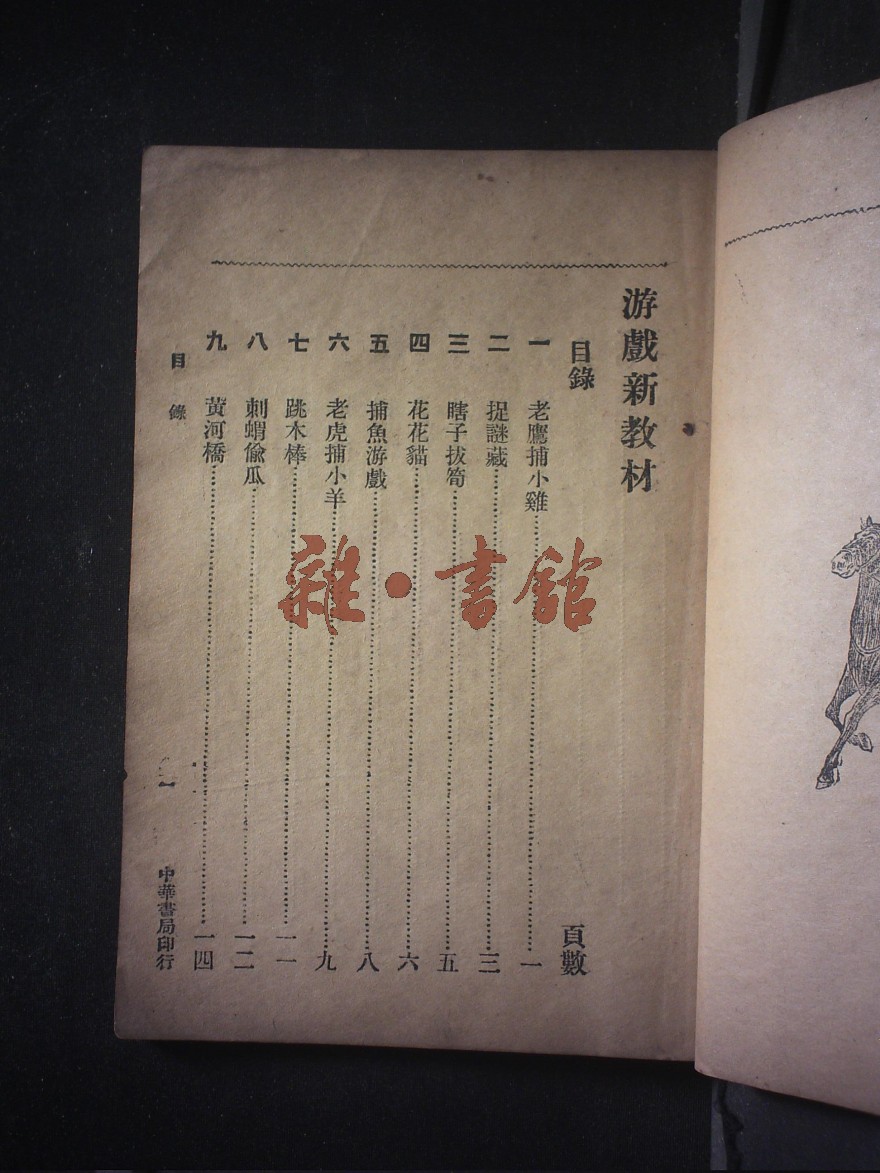 游戲新教材
目錄 頁數
一 老鷹捕小雞……一
二 捉謎藏……三
三 瞎子拔筍……五
四 花花貓……六
五 捕魚游戲……八
六 老虎捕小羊……九
七 跳木棒……一一
八 刺蝟偸瓜……一二
九 黃河橋……一四
目錄 一 中華書局印行
雜·書館